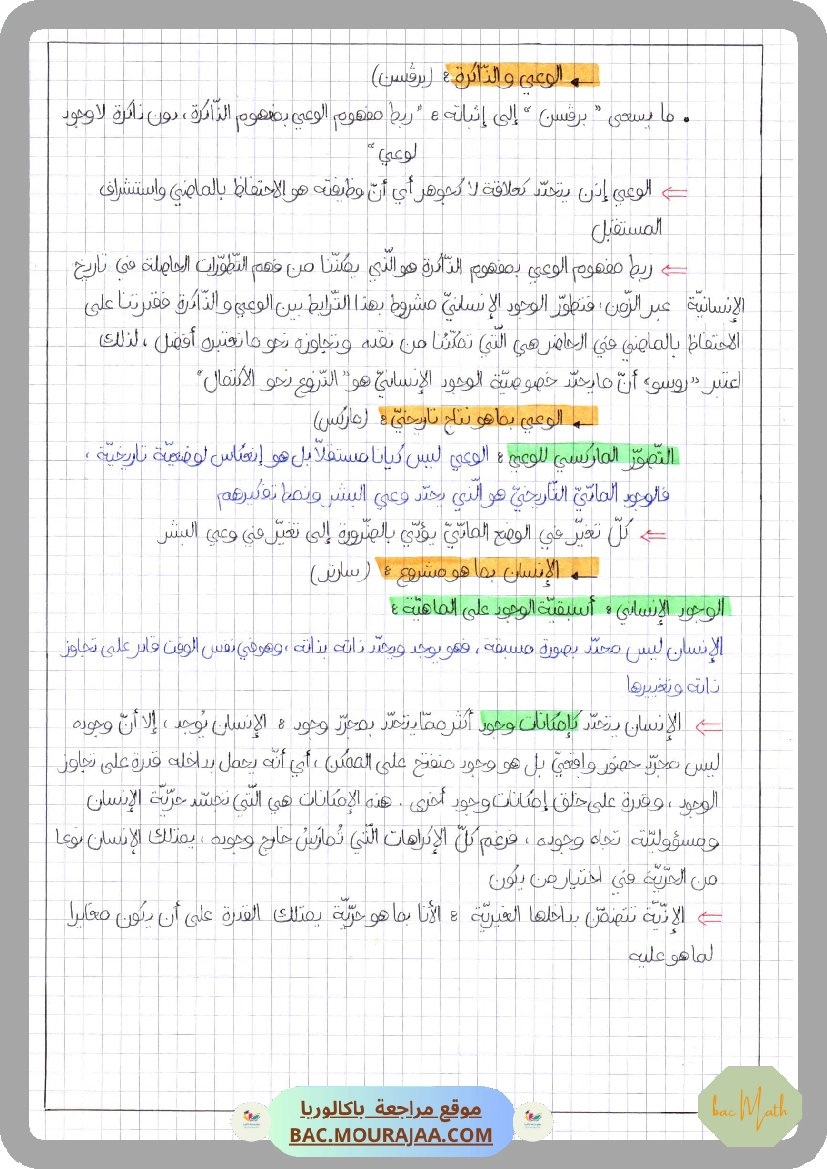 الوعي والذّاكرة : (برڤسن)
• ما يسعى "برڤسن" إلى إثباته : "ربط مفهوم الوعي بمفهوم الذّاكرة، بدون ذاكرة لا وجود
لوعي"
⇐ الوعي إذن يتحدّد كعلاقة لا كجوهر أي أنّ وظيفته هو الاحتفاظ بالماضي واستشراف
المستقبل
⇐ ربط مفهوم الوعي بمفهوم الذّاكرة هو الّذي يمكّننا من فهم التّطوّرات الحاصلة في تاريخ
الإنسانيّة عبر الزّمن: فتطوّر الوجود الإنسانيّ مشروط بهذا التّرابط بين الوعي والذّاكرة فقدرتنا على
الاحتفاظ بالماضي في الحاضر هي الّتي تمكّننا من نقده وتجاوزه نحو ما نعتبره أفضل، لذلك
اعتبر "روسو" أنّ ما يحدّد خصوصيّة الوجود الإنسانيّ هو "النّزوع نحو الاكتمال"
الوعي بما هو نتاج تاريخيّ : (ماركس)
التّصوّر الماركسي للوعي : الوعي ليس كيانا مستقلاّ بل هو إنعكاس لوضعيّة تاريخيّة ،
فالوجود المادّيّ التّاريخيّ هو الّذي يحدّد وعي البشر ونمط تفكيرهم
⇐ كلّ تغيّر في الوضع المادّيّ يؤدّي بالضّرورة إلى تغيّر في وعي البشر
الإنسان بما هو مشروع : (سارتر)
الوجود الإنساني : أسبقيّة الوجود على الماهيّة :
الإنسان ليس محدّد بصورة مسبقة ، فهو يوجد ويحدّد ذاته بذاته ، وهو في نفس الوقت قادر على تجاوز
ذاته وتغييرها
⇐ الإنسان يتحدّد كإمكانات وجود أكثر ممّا يتحدّد بمجرّد وجود : الإنسان يُوجد ، إلا أنّ وجوده
ليس مجرّد حضور واقعيّ بل هو وجود منفتح على الممكن ، أي أنّه يحمل بداخله قدرة على تجاوز
الوجود ، وقدرة على خلق إمكانات وجود أخرى . هذه الإمكانات هي الّتي تجسّد حرّيّة الإنسان
ومسؤوليّته تجاه وجوده ، فرغم كلّ الإكراهات الّتي تُمارَسُ خارج وجوده ، يمتلك الإنسان نوعا
من الحرّيّة في اختيار من يكون
⇐ الإنّيّة تتضمّن بداخلها الغيريّة : الأنا بما هو حرّيّة يمتلك القدرة على أن يكون مغايرا
لما هو عليه
موقع مراجعة باكالوريا
BAC.MOURAJAA.COM
bac Math